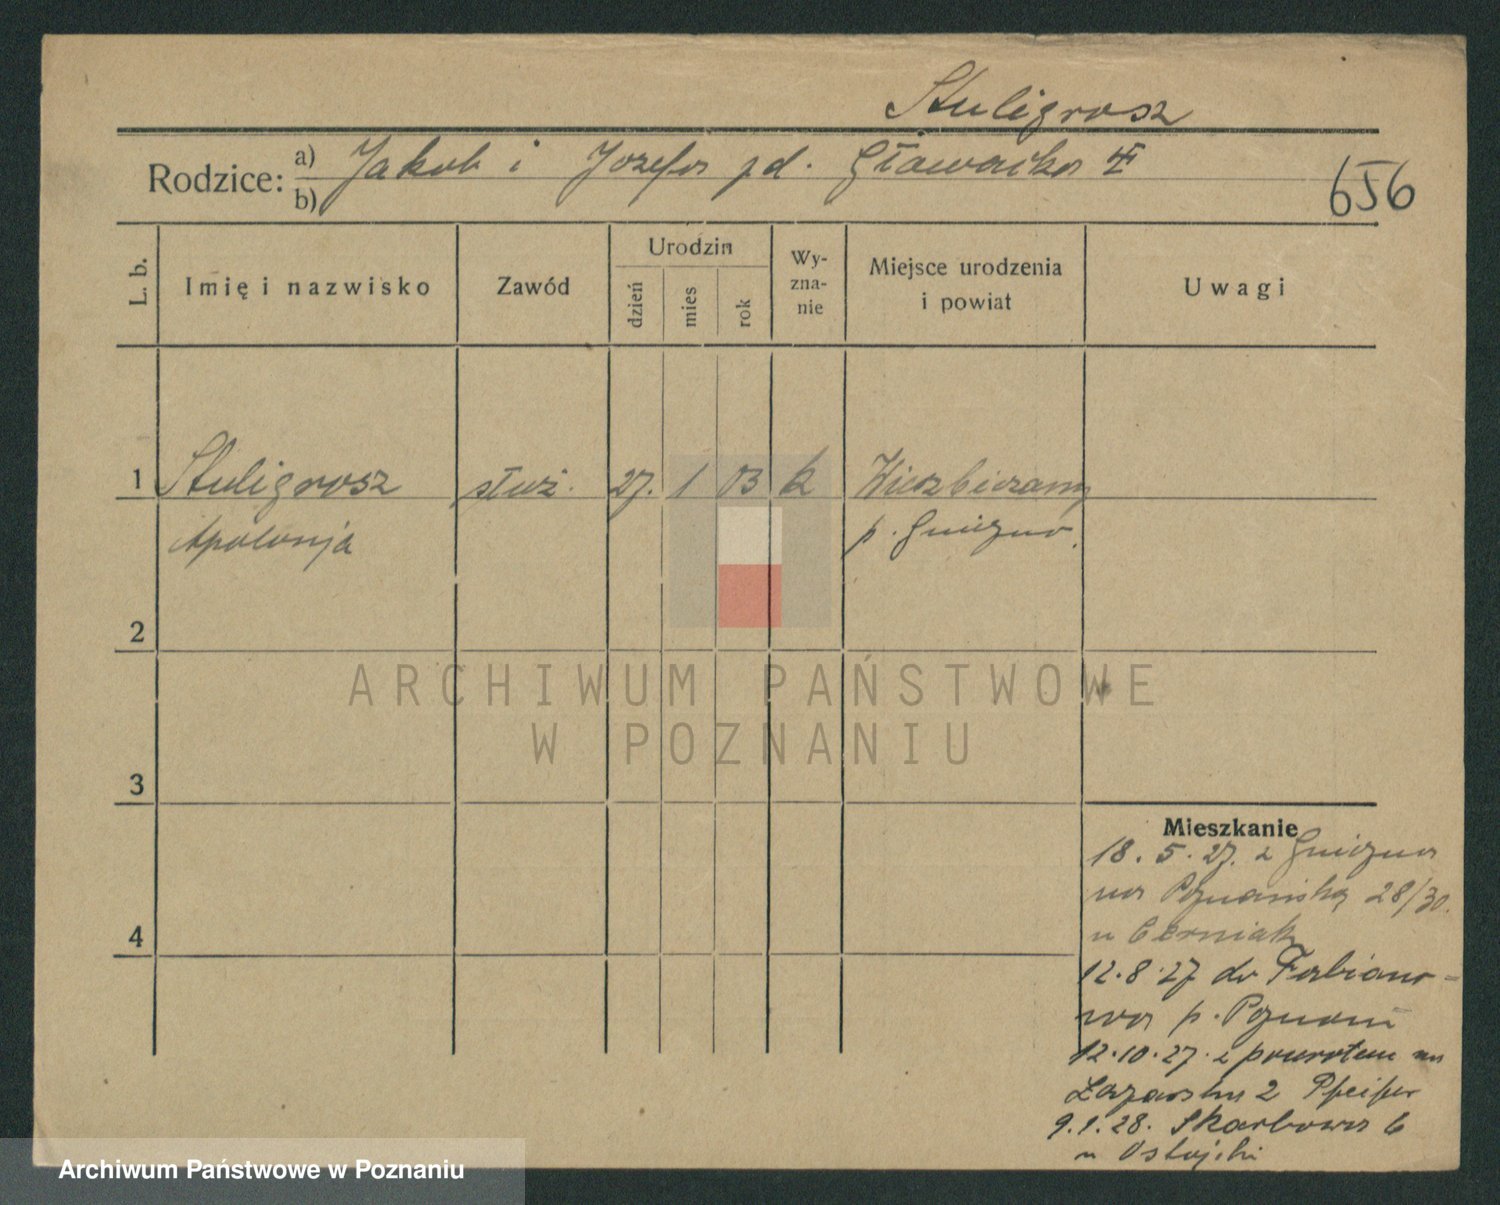 Stuligrosz
Rodzice: a) Jakob i Jozefa zd. Gławacka
b)
656
L. b.
Imię i nazwisko
Zawód
Urodzin
dzień
mies
rok
Wy-
zna-
nie
Miejsce urodzenia
i powiat
Uwagi
1 Stuligrosz służ. 27. 1 03 k Wierzbiczany
Apolonja p. Gniezno.
2
3
4
Mieszkanie
18. 5. 27. z Gniezna
na Poznańską 28/30.
u Cerniak
12. 8. 27 do Fabiano-
wa p. Poznań
12. 10. 27. z powrotem na
Łazarska 2 Pfeifer
9. 1. 28. Skarbowa 6
u Ostojski
ARCHIWUM PAŃSTWOWE
W POZNANIU
Archiwum Państwowe w Poznaniu